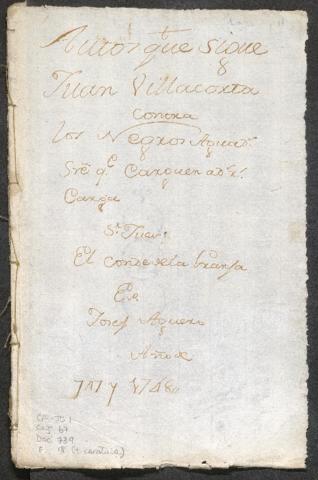 Autos que sigue
Juan Villacorta
contra
los Negros Aguad.s
Sre q.e Carguen
Carga
S.r Juez
El conde de la Granja
Es.e
Josef Aguero
Año de
1748
CA-JO 1
Caj 67
Doc 739
F. 18 (+ caratula)